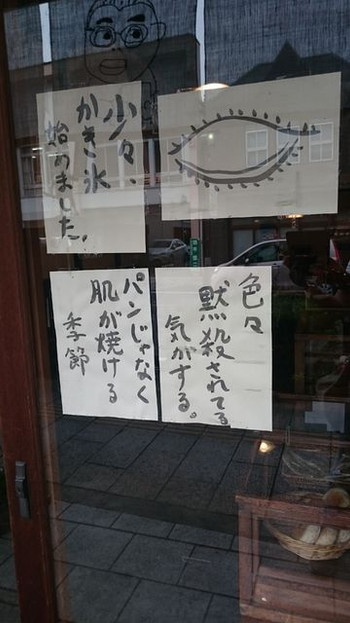 少々、
かき氷
始めました。
色々
黙殺されてる
気がする。
パンじゃなく
肌が焼ける
季節